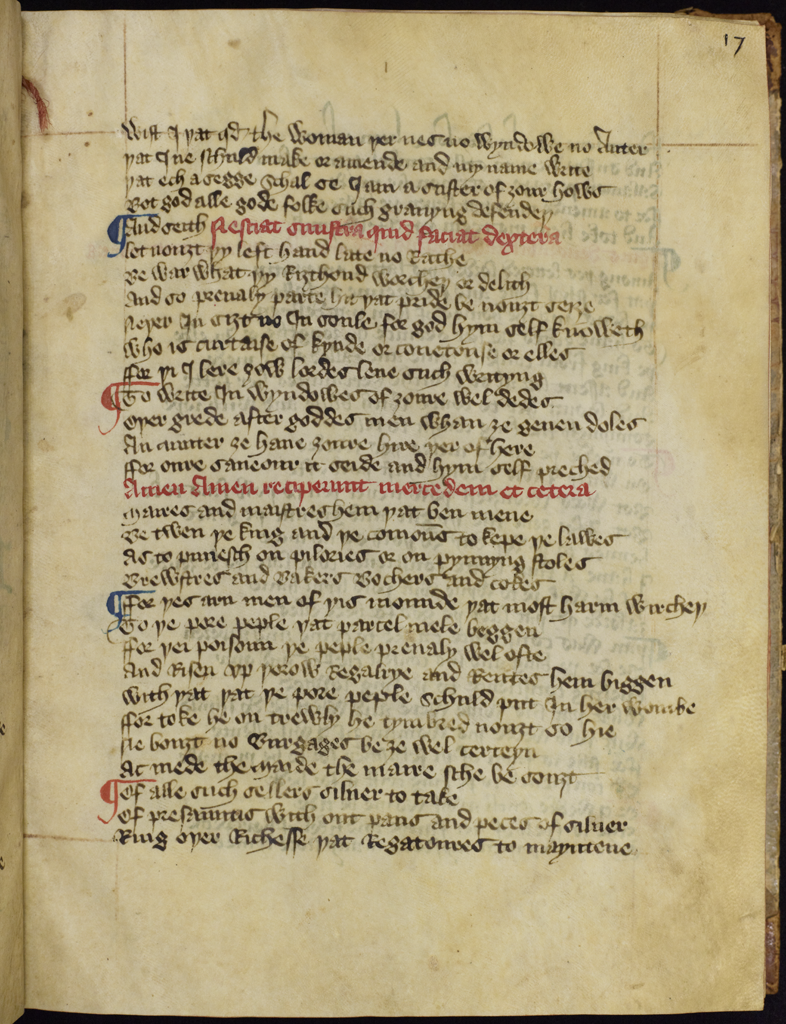 17
Wist I þat qd the woman þer nes no wyndowe no Auter
þat I ne schuld make or amende and my name write
þat ech a segge schal se I am a suster of ȝour hows
Bot god alle gode folke such grauyng defendeþ
And seith Nesciat sinistra quid faciat dextera
let nouȝt þy left hand late no Rathe
Be war what þy Riȝthond worcheþ or delith
And so preualy parte hit þat pride be nouȝt seiȝe
Neþer In siȝt no In soule for god hym self knoweth
Who is curtaise of kynde or couetouse or elles
ffor þi I lere ȝow lordes leue such writyng
To write In wyndowes of ȝoure wel dedes
Oþer grede after goddes men whan ȝe geuen doles
An aunter ȝe haue ȝoure hire þer of here
ffor oure saueour it seide and hym self preched
Amen Amen reciperunt mercedem et cetera
Maires and maistres hem þat ben mene
Be twen þe king and þe comouns to kepe þe lawes
As to punesch on pilories or on pynnyng stoles
Brewstres and Bakers Bochers and cokes
ffor þes arn men of þis mounde þat most harm wircheþ
To þe pore peple þat parcel mele beggen
ffor þei poisoun þe peple preualy wel ofte
And Risen vp þorow Regalrye and Rentes hem biggen
With þat þat þe pore peple schuld putt In her wombe
ffor toke he on trewly he tymbred nouȝt so hie
Ne bouȝt no Burgages be ȝe wel certeyn
Ac mede the maide the maire sche be souȝt
Of alle such sellers siluer to take
Of presauntis with out pans and peces of siluer
Ring oþer Richesse þat Regatoures to maynteue